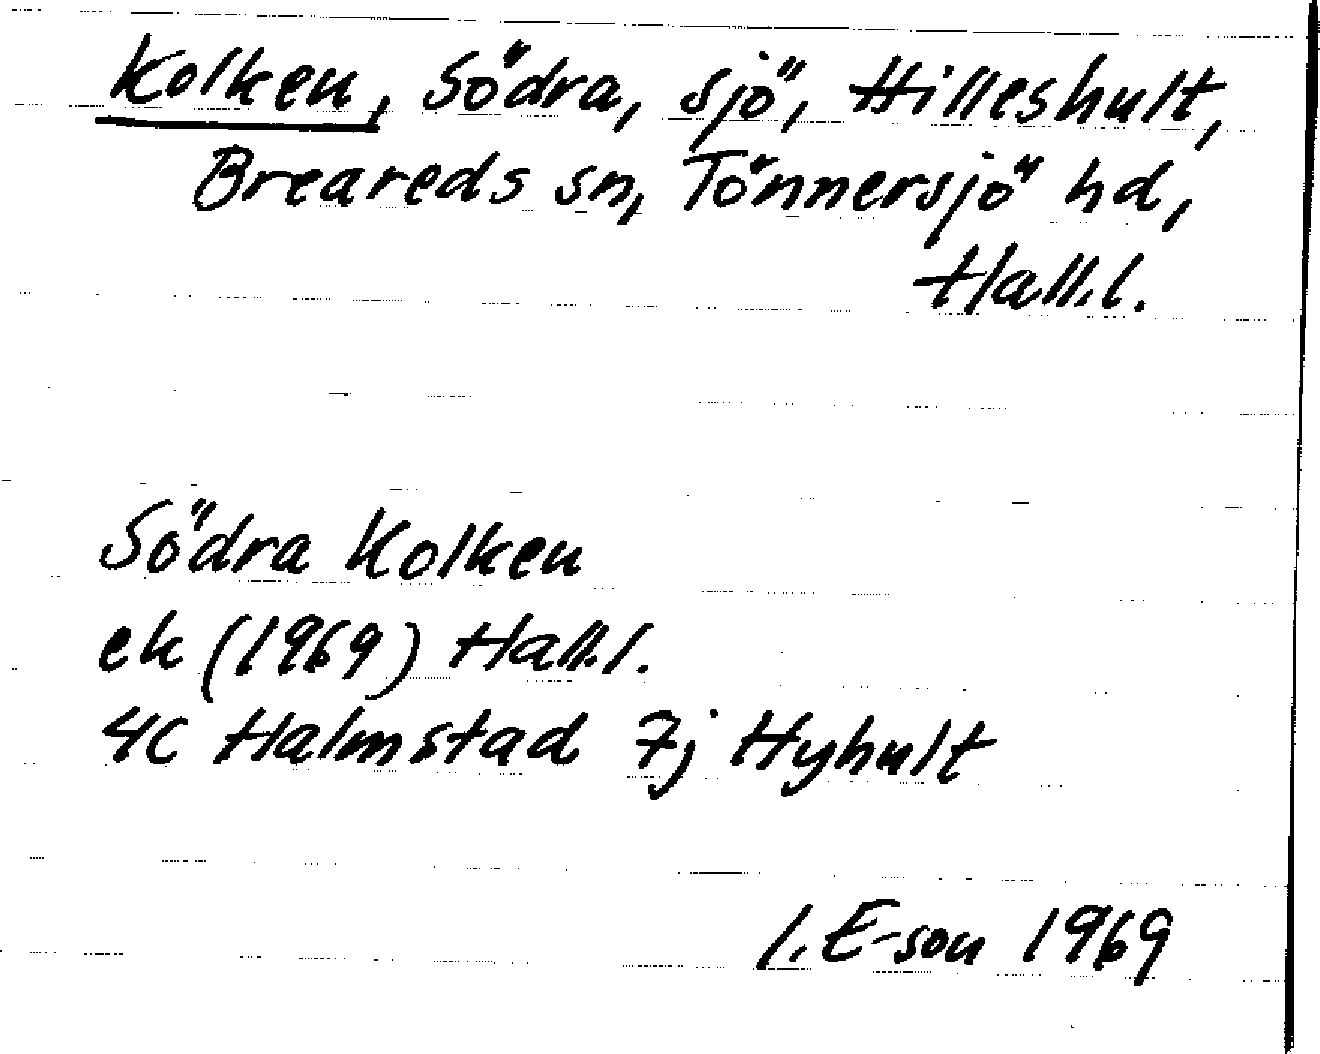 Kolken, Södra, sjö, Hilleshult,
Breareds sn, Tönnersjö hd,
Hall.l.
Södra Kolken
ek (1969) Hall.l.
4C Halmstad 7j Hyhult
I. E-son 1969